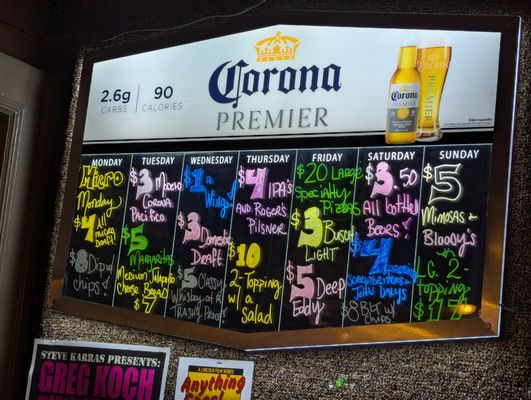 Corona
PREMIER
2.6g
CARBS
90
CALORIES
MONDAY
Micro
Monday
$4 All
micro
Draft
$8 Dip w/
chips
TUESDAY
$3 Modelo
Corona
Pacifico
$5
Margaritas
Medium Jalapeño
Cheese Bread
$7
WEDNESDAY
$1
Wings
$3
Domestic
Draft
$5 Classy
Whiskey at a
Trashy Price
THURSDAY
$4 IPA's
and Roger's
Pilsner
$10
2-Topping
w/ a
Salad
FRIDAY
$20 Large
Specialty
Pizzas
$3 Busch
Light
$5 Deep
Eddy
SATURDAY
$3.50
All bottle
Beers!
$4
Screwdrivers
$8 BLT w/
chips
SUNDAY
$5
Mimosas &
Bloody's
LG. 2-
topping
$17
STEVE KARRAS PRESENTS:
GREG KOCH
A LINCOLN FILM SERIES
Anything